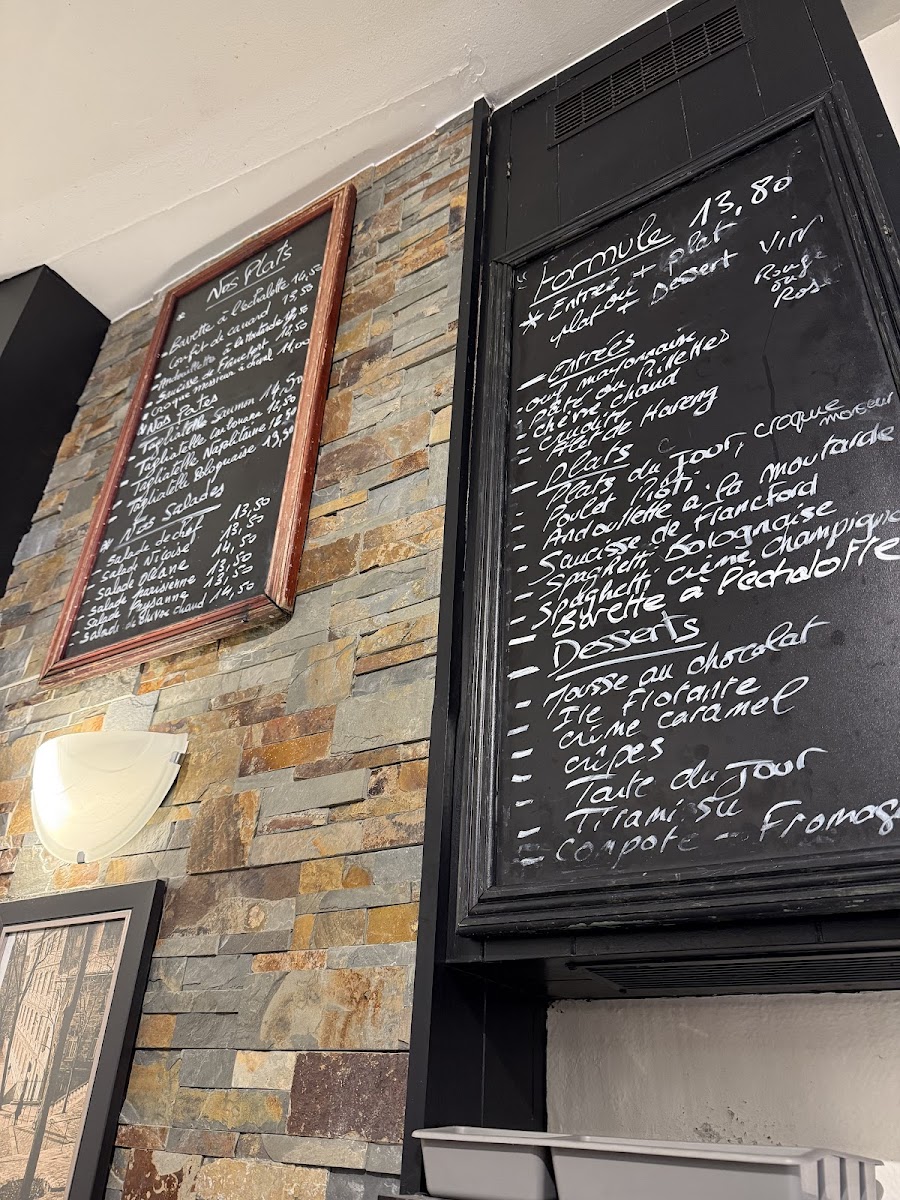 * Nos Plats
- Bavette à l'échalotte 14,50
- Confit de canard 13,50
- Andouillette à la Moutarde
- Saucisse de Francfort 12,50
- Croque monsieur à cheval 11,00
* Nos Pates
- Tagliatelle Saumon 14,50
- Tagliatelle 12,50
- Tagliatelle Napolitaine 12,50
- Tagliatelle Bolognaise 13,50
* Nos Salades
- Salade de chef 13,50
- Salade Niçoise 13,50
- Salade 14,50
- Salade Parisienne 13,50
- Salade Paysanne 13,50
- Salade de chèvre chaud 14,50
Formule 13,80
* Entrée + Plat
ou
Plat + Dessert
Vin
Rouge
ou
Rosé
- Entrées
- œuf mayonnaise
- Pâté ou Rillettes
- Chèvre chaud
- Crudité
- Filet de Hareng
- Plats
- Plats du Jour, croque monsieur
- Poulet Rôti
- Andoullette à la moutarde
- Saucisse de Francford
- Spaghetti Bolognaise
- Spaghetti crème champigno
- Bavette à l'échalotte
- Desserts
- Mousse au chocolat
- Ile Florante
- Crème caramel
- crêpes
- Tarte du Jour
- Tiramissu
- Compote - Fromag